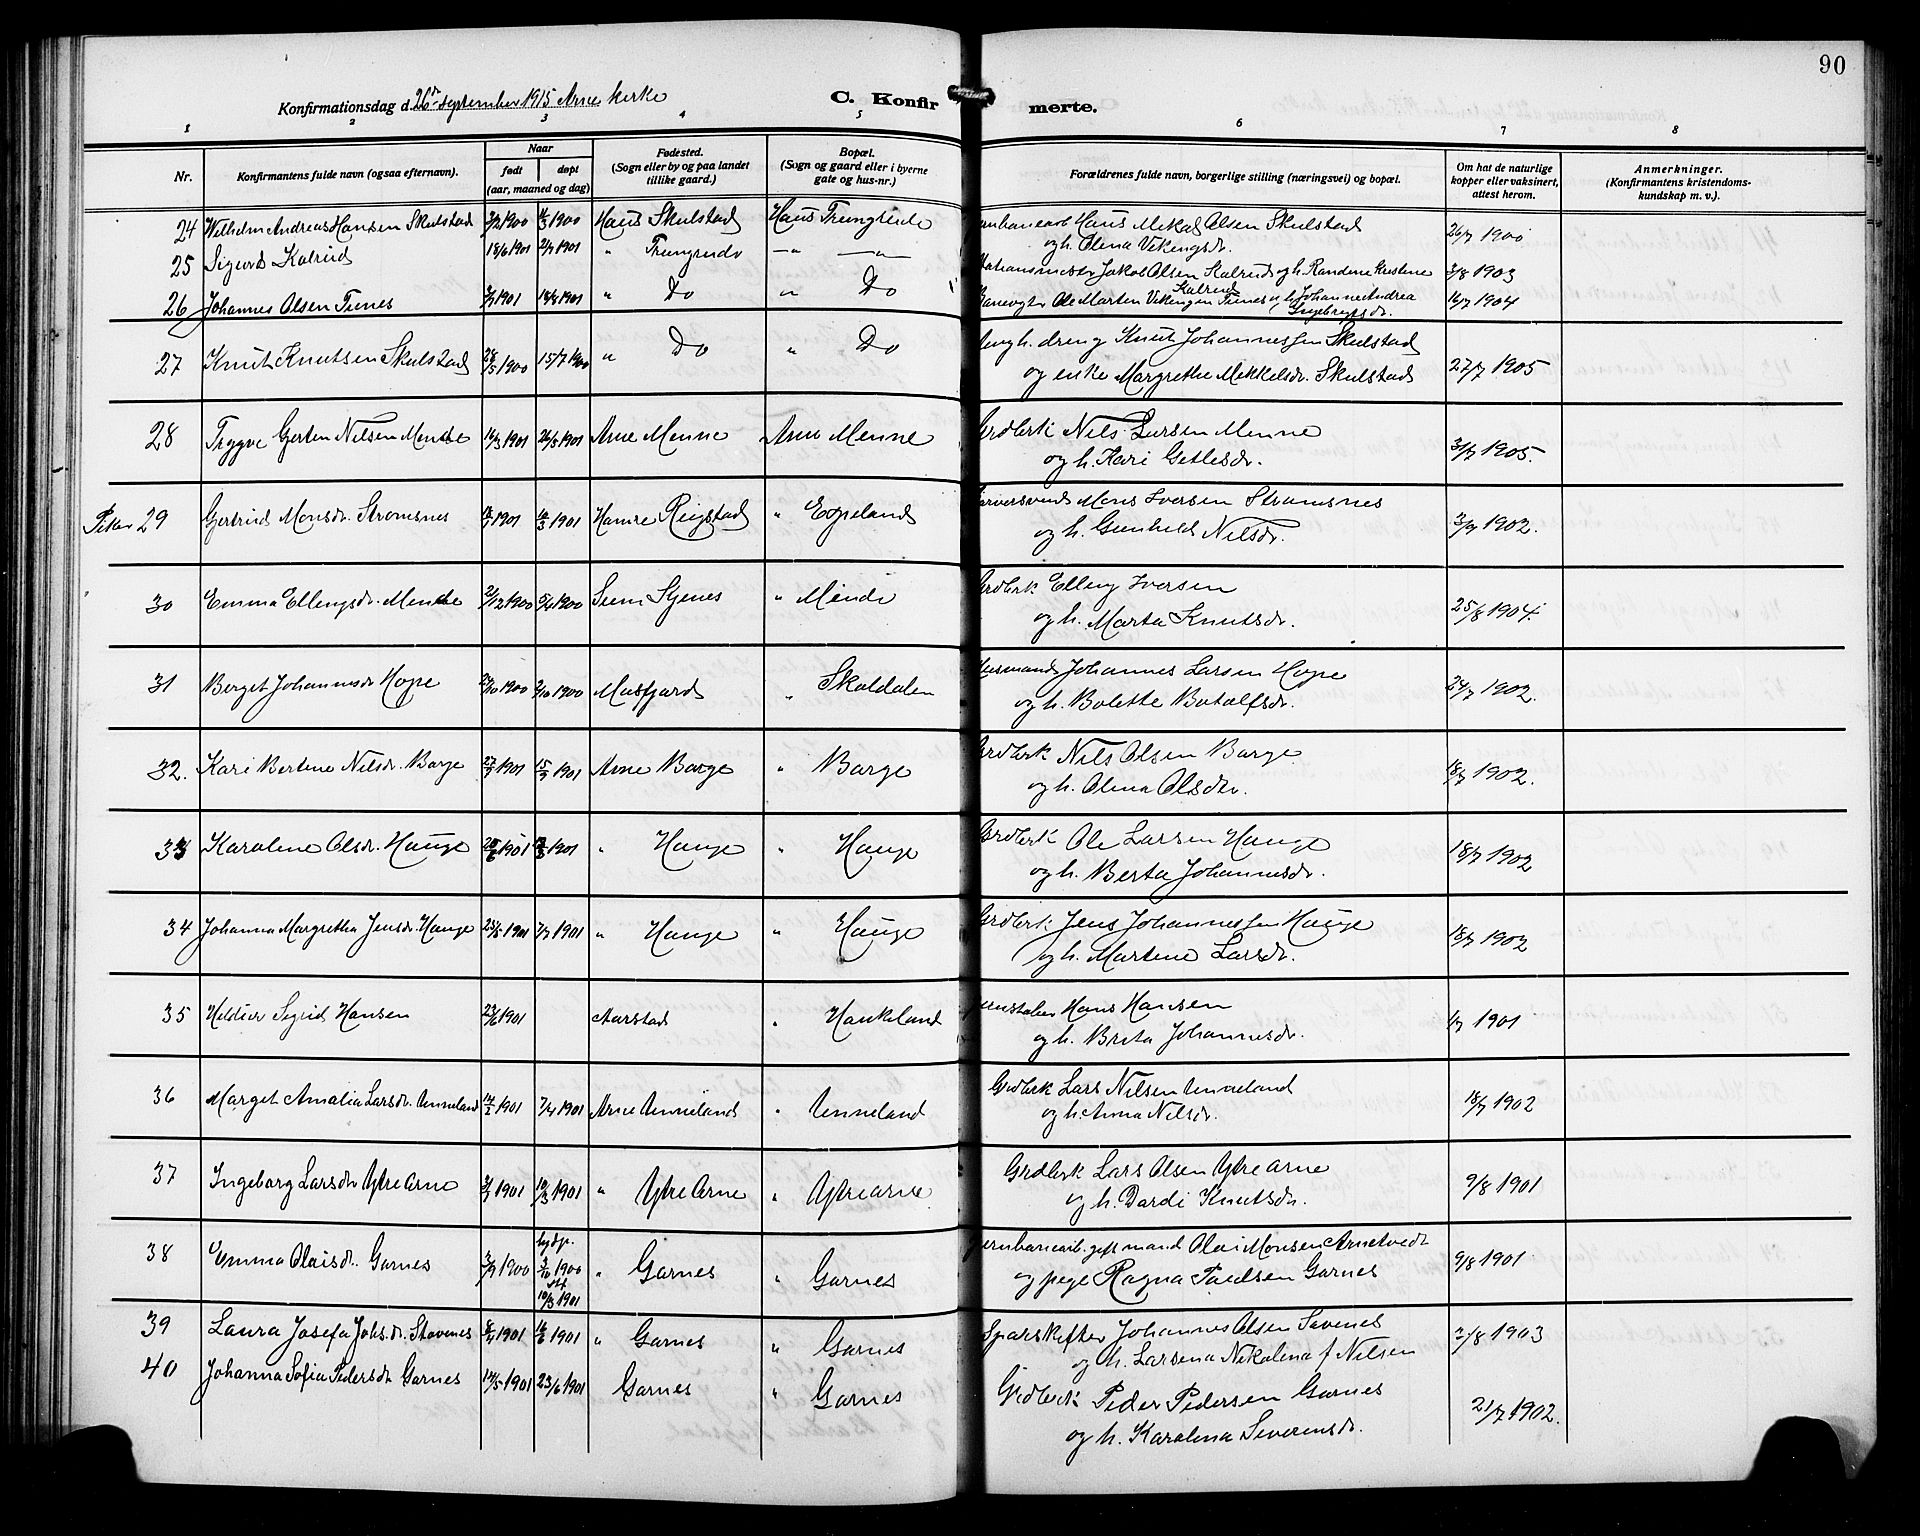 90
Konfirmationsdag d. 26de september 1915 Arne kirke C. Konfirmerte.
1 2 3 4 5 6 7 8
Nr. Konfirmantens fulde navn (ogsaa efternavn). Naar født døpt (aar, maaned og dag) Fødested. (Sogn eller by og paa landet tillike gaard.) Bopæl. (Sogn og gaard eller i byerne gate og hus-nr.) Forældrenes fulde navn, borgerlige stilling (næringsvei) og bopæl. Om hat de naturlige kopper eller vaksinert, attest herom. Anmerkninger. (Konfirmantens kristendomskundskap m. v.).
24 Wilhelm Andreas Hansen Skulstad 1900 1900 Haus Skulstad Haus Trengreide Hans Mikal Olsen Skulstad 26/7 1900
og h. Olena Vikingsdr.
25 Sigurd Kalrud 18/6 1901 2/7 1901 " Trengreide — " — " — Jakob Olsen Kalrud og h. Randine Kristine Kalrud 3/8 1903
26 Johannes Olsen Tunes 1901 18/8 1901 " Do " Do Banevogter Ole Marten Vikingsen Tunes og h. Johanne Andrea Ingebrigtsdr. 16/7 1904
27 Knut Knutsen Skulstad 28/5 1900 15/7 1900 " Do " Do ungk. dreng Knut Johannessen Skulstad
og enke Margrethe Mikkelsdr. Skulstad 27/7 1905
28 Trygve Gerten Nilsen Menne 16/3 1901 26/5 1901 Arne Menne Arne Menne Grdbrk Nils Larsen Menne
og h. Kari Getlesdr. 31/7 1905.
Piker 29 Gertrud Monsdr. Stromsnes 1901 1901 Hamre Reigstad " Espeland Farversvend Mons Iversen Stromsnes
og h. Gunhild Nilsdr. 3/9 1902.
30 Emma Ellingsdr. Mende 2/12 1900 1900 " Mende Grdbrk Elling Iversen
og h. Marta Knutsdr. 25/8 1904.
31 Berget Johannesdr Hope 1900 1900 Masfjord " Skoldalen Husmand Johannes Larsen Hope
og h. Bolette Botolfsdr. 24/7 1902.
32. Kari Bertine Nilsdr. Borge 1901 1901 Arne Borge " Borge Grdbrk Nils Olsen Borge
og h. Olina Olsdtr. 18/7 1902.
33 Karoline Olsdr. Hauge 1901 1901 " Hauge " Hauge Grdbrk Ole Larsen Hauge
og h. Berta Johannesdr. 18/7 1902
34 Johanna Margretha Jensdr. Hauge 23/5 1901 7/7 1901 " Hauge " Hauge Grdbrk Jens Johannessen Hauge
og h. Martine Larsdr. 18/7 1902
35 Sigrid Hansen 23/6 1901 Aarstad " Haukeland Hans Hansen
og h. Brita Johannesdr. 1901
36 Marget Amalia Larsdr. Unneland 1901 7/4 1901 Arne Unneland " Unneland Grdbrk Lars Nilsen Unneland
og h. Anna Nilsdr. 18/7 1902
37 Ingeborg Larsdtr Ytre Arne 1901 10/3 1901 " Ytre Arne " Ytre Arne Grdbrk Lars Olsen Ytre Arne
og h. Dardi Knutsdr. 9/8 1901
38 Emma Olaisdr. Garnes 3/9 1900 hjdp. 1900 st. 10/3 1901 " Garnes " Garnes Jernbanearb. gift mand Olai Monsen Arnetvedt
og pige Ragna Paulsen Garnes 9/8 1901
39 Laura Josefa Johsdr. Stavenes 1901 16/6 1901 " Garnes " Garnes Johannes Olsen Stavenes
og h. Larsina Nikolina f Nilsen 2/8 1903
40 Johanna Sofia Pedersdtr Garnes 1901 23/6 1901 Garnes " Garnes Grdbrk Peder Pedersen Garnes
og h. Karolina Severinsdr. 21/7 1902.